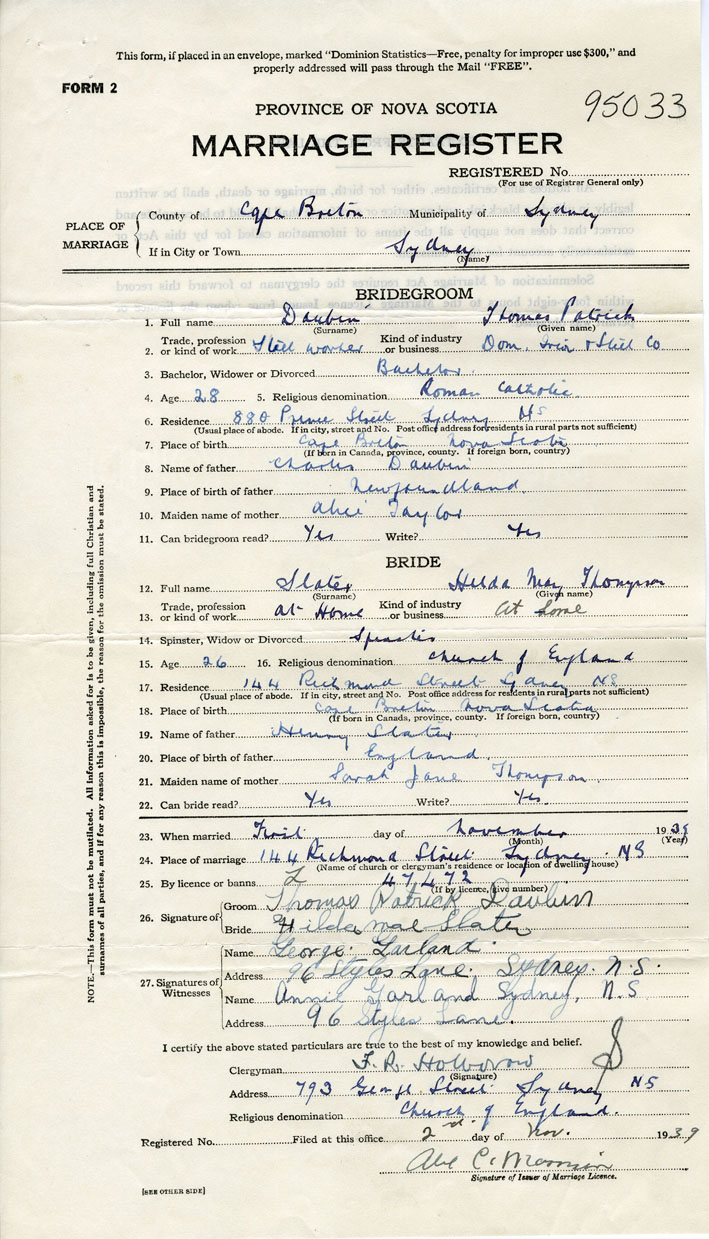 This form, if placed in an envelope, marked "Dominion Statistics—Free, penalty for improper use $300," and
properly addressed will pass through the Mail "FREE".
FORM 2
95033
PROVINCE OF NOVA SCOTIA
MARRIAGE REGISTER
REGISTERED No.
(For use of Registrar General only)
PLACE OF MARRIAGE
County of Cape Breton Municipality of Sydney
If in City or Town Sydney
(Name)
BRIDEGROOM
1. Full name Daubin Thomas Patrick
(Surname) (Given name)
2. Trade, profession or kind of work Steel worker Kind of industry or business Dom. Iron & Steel Co
3. Bachelor, Widower or Divorced Bachelor
4. Age 28 5. Religious denomination Roman Catholic
6. Residence 880 Prince Street Sydney NS
(Usual place of abode. If in city, street and No. Post office address for residents in rural parts not sufficient)
7. Place of birth Cape Breton Nova Scotia
(If born in Canada, province, county. If foreign born, country)
8. Name of father Charles Daubin
9. Place of birth of father Newfoundland
10. Maiden name of mother Alice Taylor
11. Can bridegroom read? Yes Write? Yes
BRIDE
12. Full name Slater Hilda May Thompson
(Surname) (Given name)
13. Trade, profession or kind of work at Home Kind of industry or business At Home
14. Spinster, Widow or Divorced
15. Age 26 16. Religious denomination Church of England
17. Residence 144 Richmond Street Sydney NS
(Usual place of abode. If in city, street and No. Post office address for residents in rural parts not sufficient)
18. Place of birth Cape Breton Nova Scotia
(If born in Canada, province, county. If foreign born, country)
19. Name of father Henry Slater
20. Place of birth of father England
21. Maiden name of mother Sarah Jane Thompson
22. Can bride read? Yes Write? Yes.
23. When married First day of November 1939
(Month) (Year)
24. Place of marriage 144 Richmond Street Sydney NS
(Name of church or clergyman's residence or location of dwelling house)
25. By licence or banns L 47472
(If by licence, give number)
26. Signature of
Groom Thomas Patrick Daubin
Bride Hilda Mae Slater
27. Signatures of Witnesses
Name George Garland
Address 96 Styles Lane. Sydney. N.S.
Name Annie Garland Sydney, N.S
Address 96 Styles Lane.
I certify the above stated particulars are true to the best of my knowledge and belief.
Clergyman F. R. Holborow
(Signature)
Address 793 George Street Sydney NS
Religious denomination Church of England.
Registered No. Filed at this office 2nd. day of Nov. 1939
Signature of Issuer of Marriage Licence.
[SEE OTHER SIDE]
NOTE.—This form must not be mutilated. All information asked for is to be given, including full Christian and
surnames of all parties, and if for any reason this is impossible, the reason for the omission must be stated.